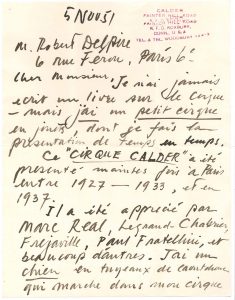 5N0051
CALDER
PAINTER HILL ROAD
R.F.D. ROXBURY
CONN. U.S.A.
M. Robert Delpire
6 rue Ferou, Paris 6e
Cher Monsieur, Je n'ai jamais
ecrit un livre sur le cirque
- mais j'ai un petit cirque
en jouets dont je fais la
présentation de temps en temps.
Ce "CIRQUE CALDER" a été
presenté maintes fois à Paris
entre 1927 - 1933, et en
1937.
Il a été apprecié par
Marc Real, Legrand-Chabrier,
Frejaville, Paul Fratellini, et
beaucoup d'autres. J'ai un
chien en tuyeaux de caoutchouc
qui marche dans mon cirque